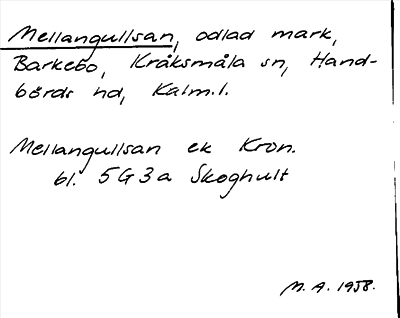 Mellangullsan, odlad mark,
Barkebo, Kråksmåla sn, Hand-
börds hd, Kalm.l.
Mellangullsan ek Kron.
bl. 5G3a Skoghult
M.A. 1958.